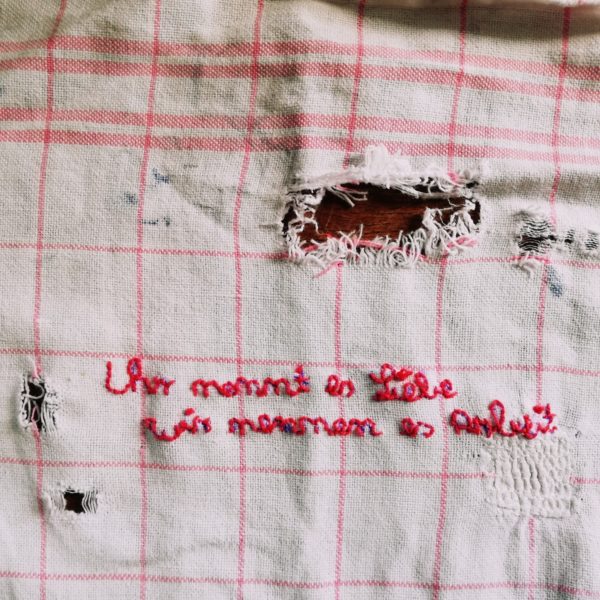 Ihr nennt es Liebe
wir nennen es Arbeit